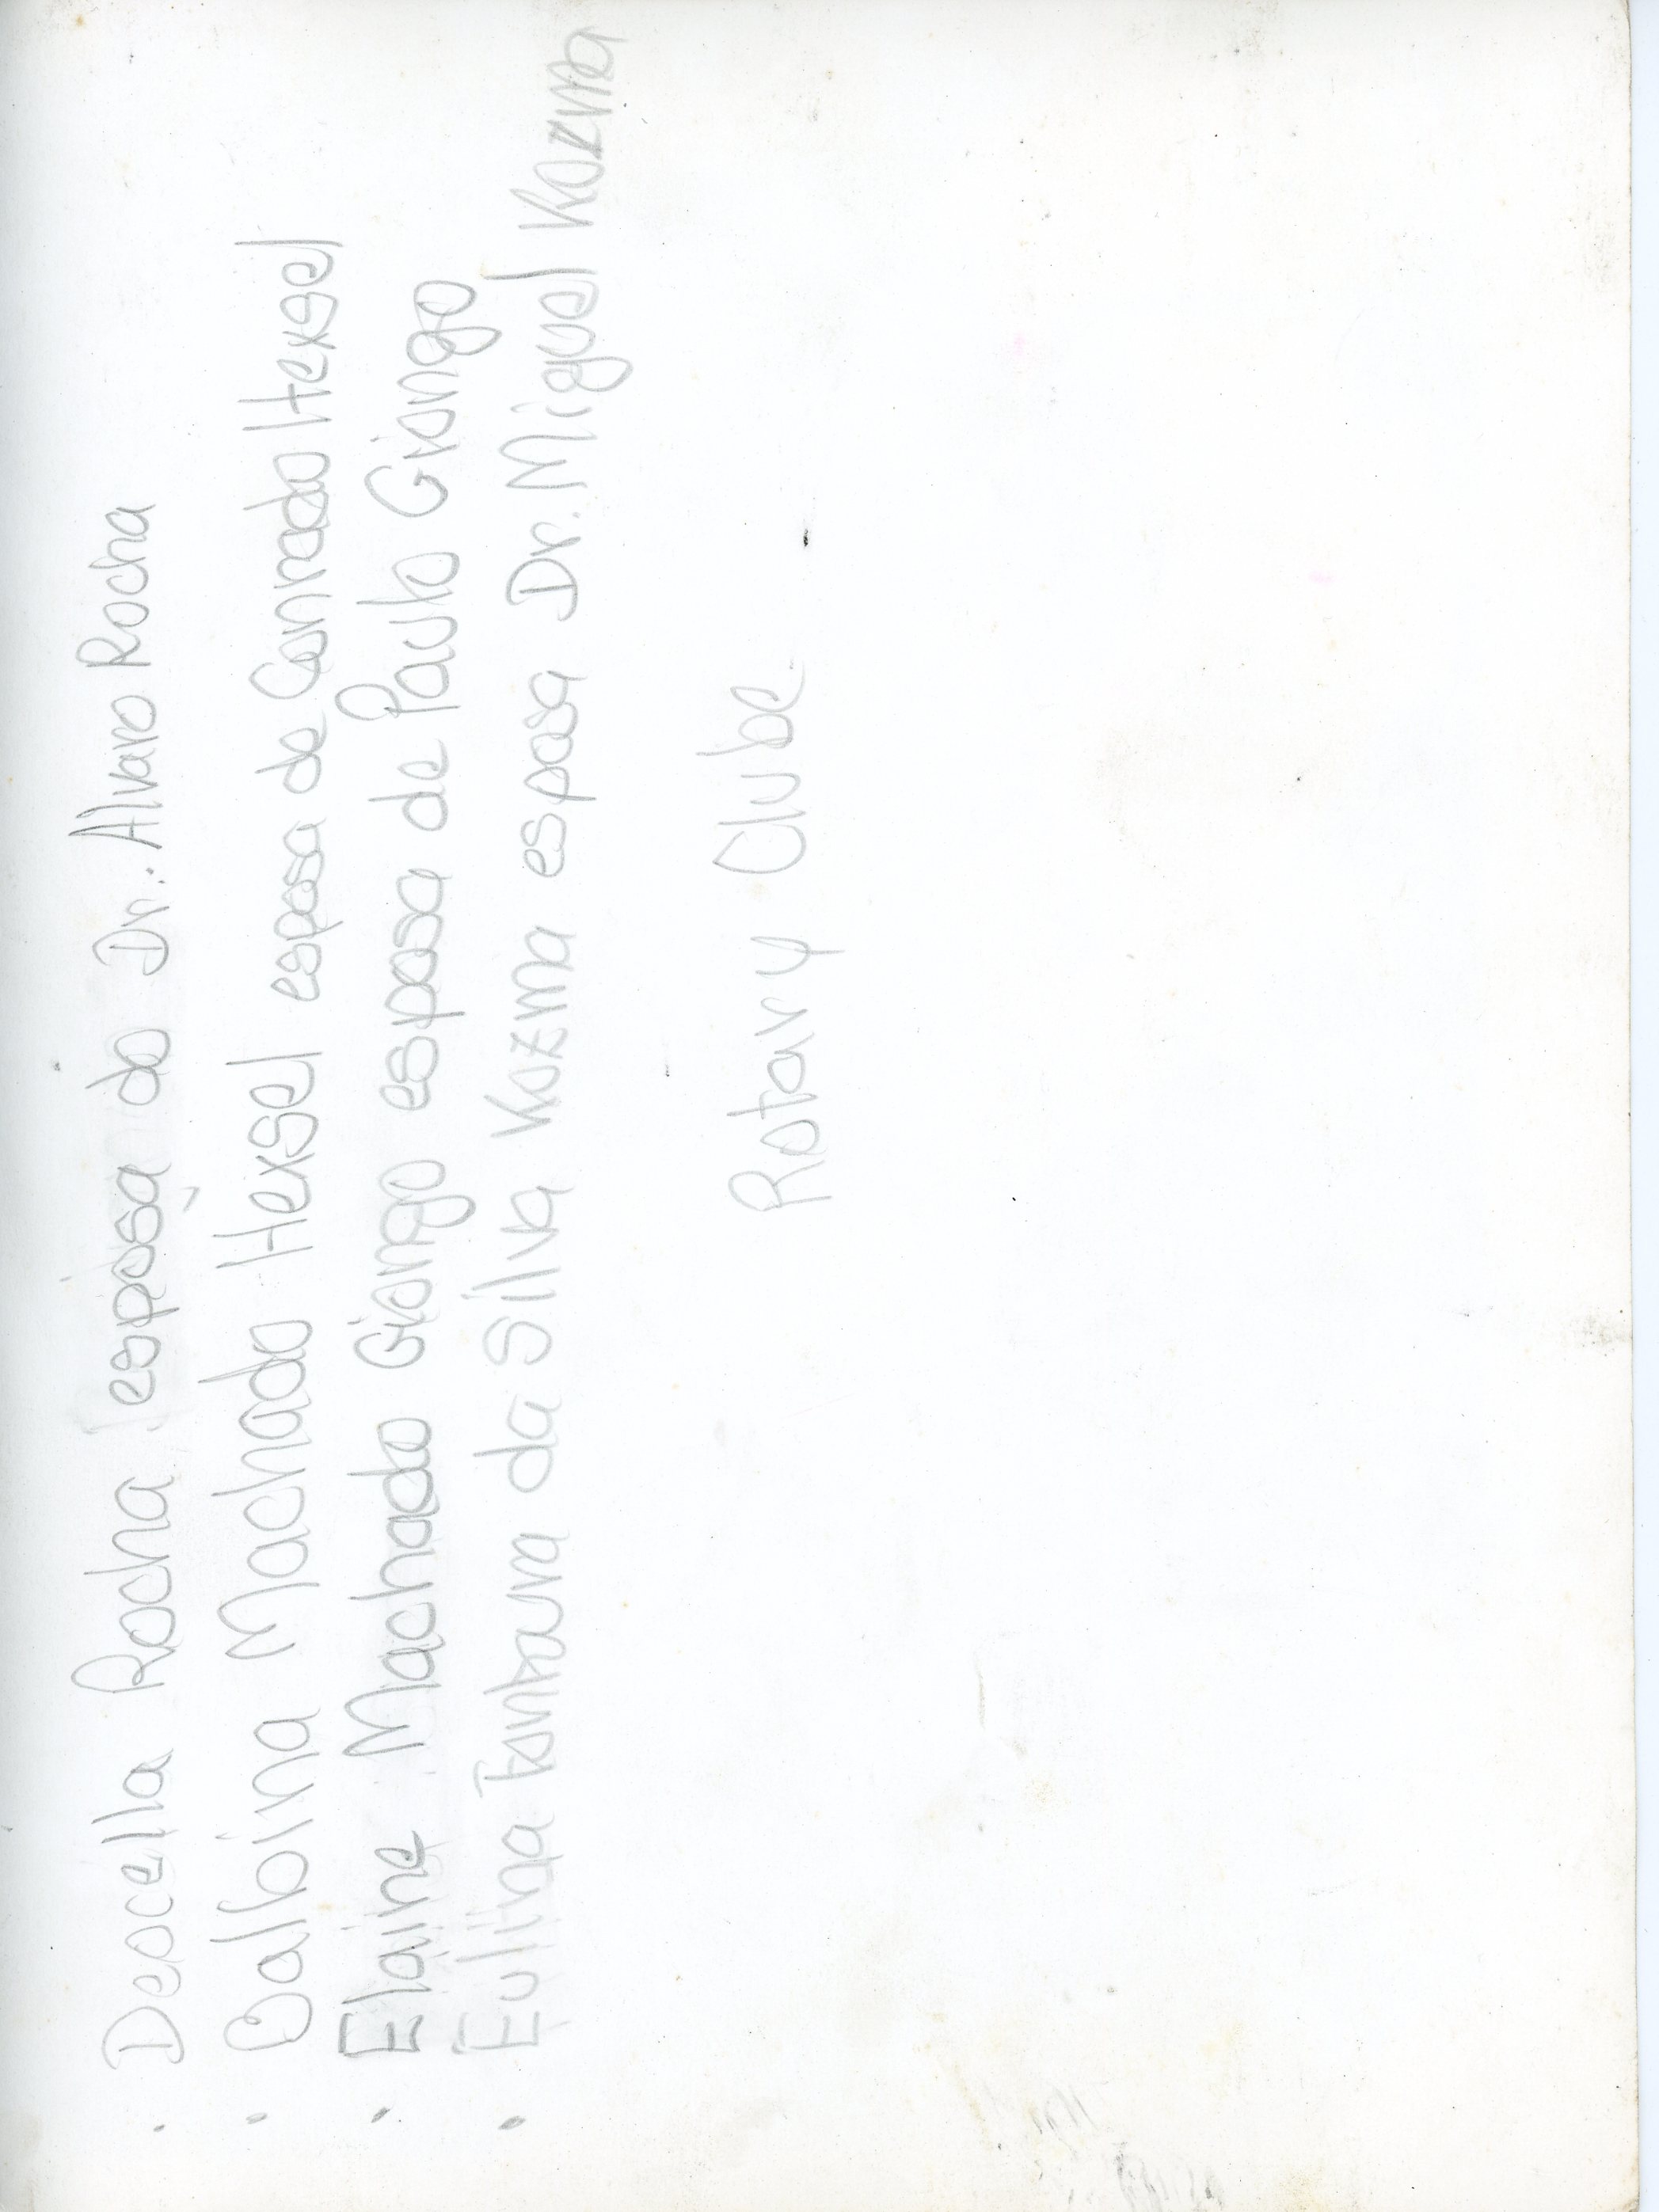 . Deocella Rocha esposa do Dr. Alvaro Rocha
. Balbina Machado Hexsel esposa de Conrado Hexsel
. Elaine Machado Giongo esposa de Paulo Giongo
. Eulina Fontoura da Silva Kozma esposa Dr. Miguel Kozma
Rotary Clube